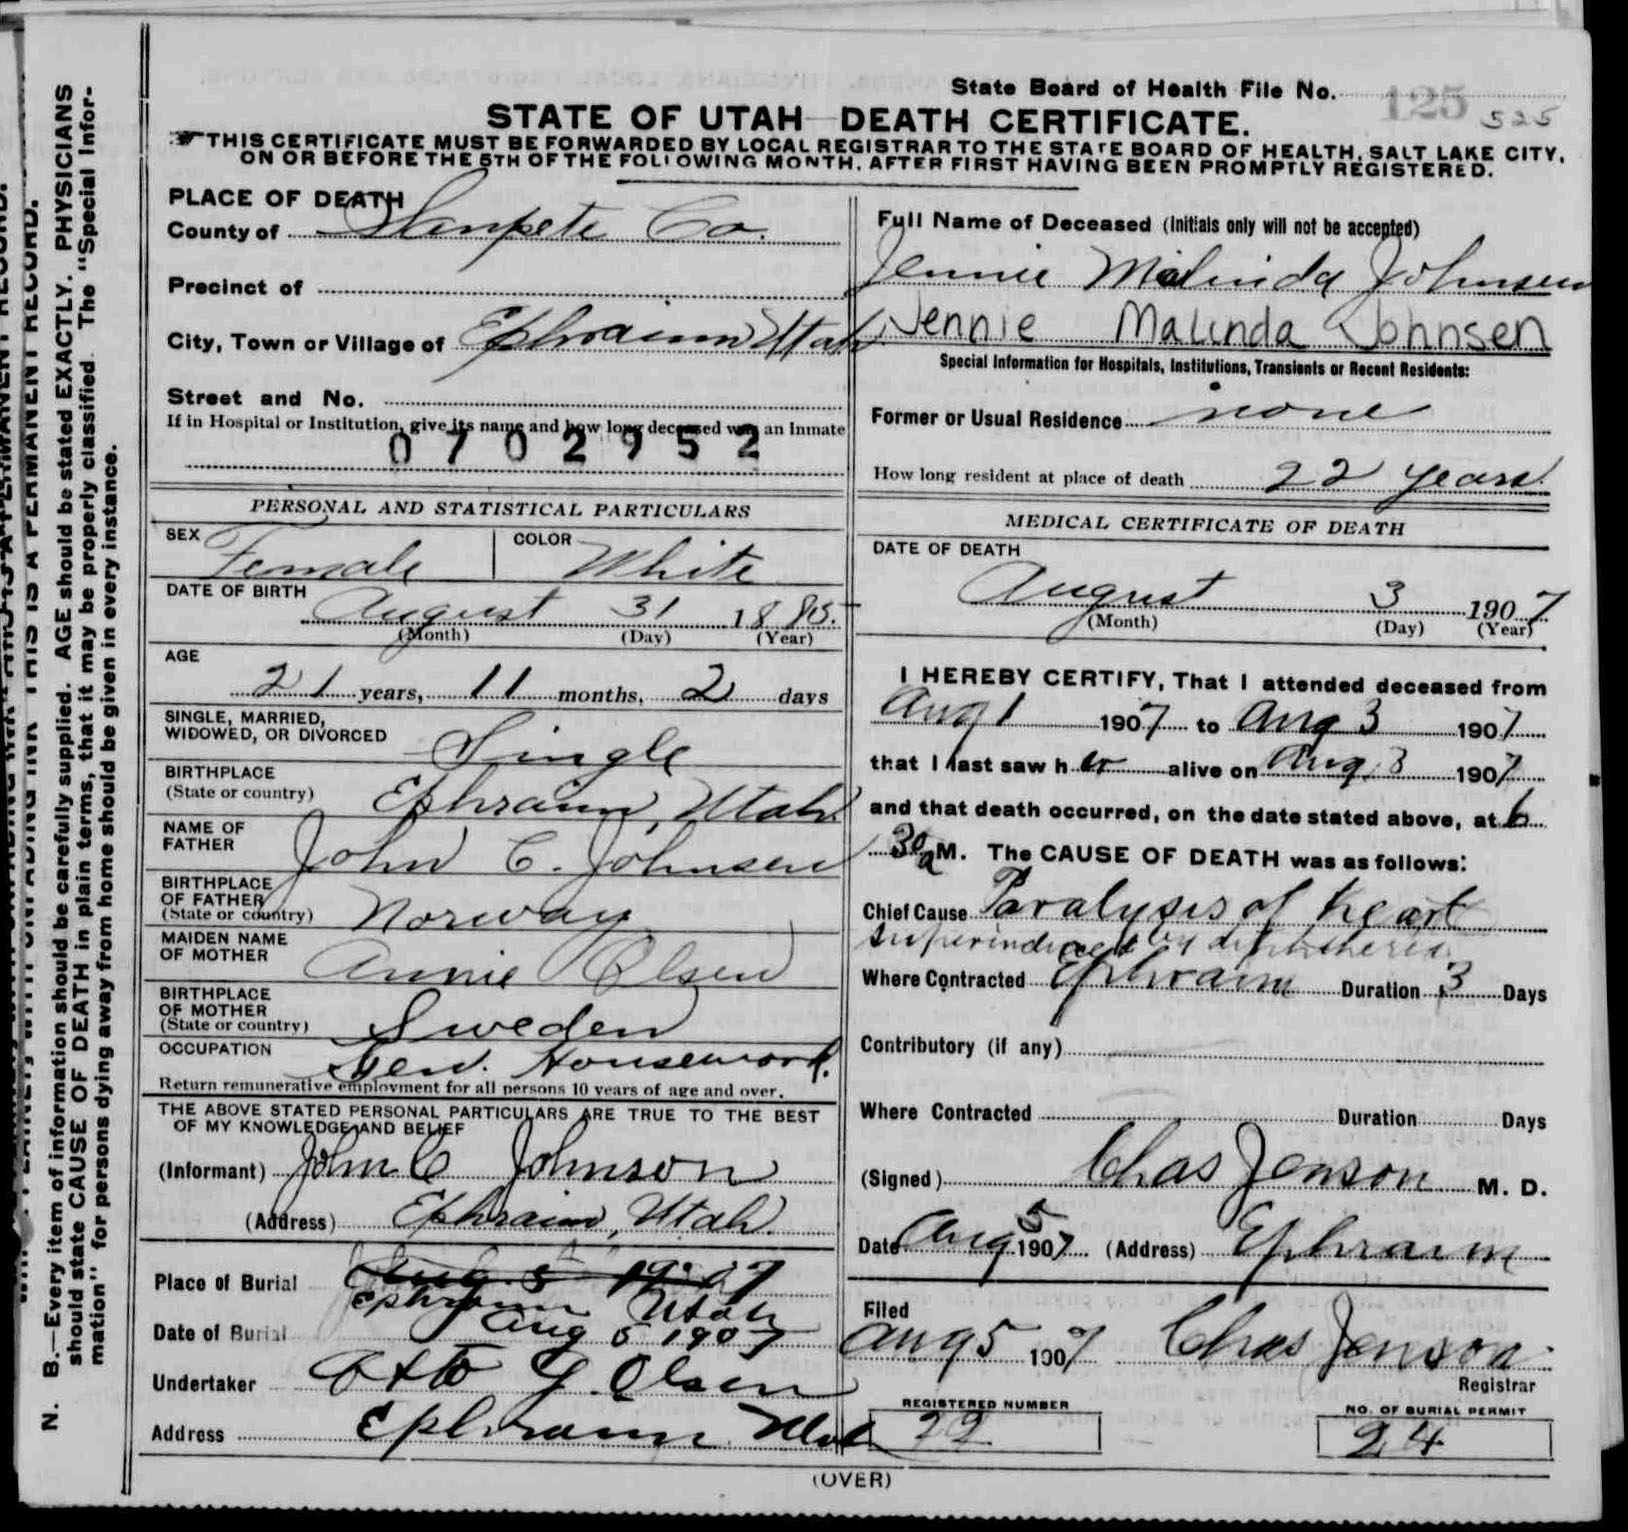 State Board of Health File No. 125 525
STATE OF UTAH DEATH CERTIFICATE.
THIS CERTIFICATE MUST BE FORWARDED BY LOCAL REGISTRAR TO THE STATE BOARD OF HEALTH, SALT LAKE CITY,
ON OR BEFORE THE 5TH OF THE FOLLOWING MONTH, AFTER FIRST HAVING BEEN PROMPTLY REGISTERED.
PLACE OF DEATH
County of Sanpete Co.
Precinct of
City, Town or Village of Ephraim Utah
Street and No.
If in Hospital or Institution, give its name and how long deceased was an Inmate
0702952
PERSONAL AND STATISTICAL PARTICULARS
SEX Female COLOR White
DATE OF BIRTH
August 31 1885.
(Month) (Day) (Year)
AGE
21 years, 11 months, 2 days
SINGLE, MARRIED,
WIDOWED, OR DIVORCED Single
BIRTHPLACE
(State or country) Ephraim, Utah
NAME OF
FATHER John C. Johnsen
BIRTHPLACE
OF FATHER
(State or country) Norway
MAIDEN NAME
OF MOTHER Annie Olsen
BIRTHPLACE
OF MOTHER
(State or country) Sweden
OCCUPATION Gen. Housework.
Return remunerative employment for all persons 10 years of age and over.
THE ABOVE STATED PERSONAL PARTICULARS ARE TRUE TO THE BEST
OF MY KNOWLEDGE AND BELIEF
(Informant) John C Johnson
(Address) Ephraim, Utah.
Place of Burial Aug. 5 1907
Ephraim Utah
Date of Burial Aug 5 1907
Undertaker Otto G. Olsen
Address Ephraim Utah
Full Name of Deceased (Initials only will not be accepted)
Jennie Malinda Johnsen
Jennie Malinda Johnsen
Special Information for Hospitals, Institutions, Transients or Recent Residents:
Former or Usual Residence none
How long resident at place of death 22 years
MEDICAL CERTIFICATE OF DEATH
DATE OF DEATH
August 3 1907
(Month) (Day) (Year)
I HEREBY CERTIFY, That I attended deceased from
Aug 1 1907 to Aug 3 1907
that I last saw her alive on Aug. 3 1907
and that death occurred, on the date stated above, at 6
30 a M. The CAUSE OF DEATH was as follows:
Chief Cause Paralysis of heart
superinduced by diphtheria
Where Contracted Ephraim Duration 3 Days
Contributory (if any)
Where Contracted Duration Days
(Signed) Chas Jenson M. D.
Date Aug 5 1907 (Address) Ephraim
Filed
Aug 5 1907 Chas Jenson
Registrar
REGISTERED NUMBER
22
NO. OF BURIAL PERMIT
24
(OVER)
N. B.—Every item of information should be carefully supplied. AGE should be stated EXACTLY. PHYSICIANS
should state CAUSE OF DEATH in plain terms, that it may be properly classified. The "Special Infor-
mation" for persons dying away from home should be given in every instance.